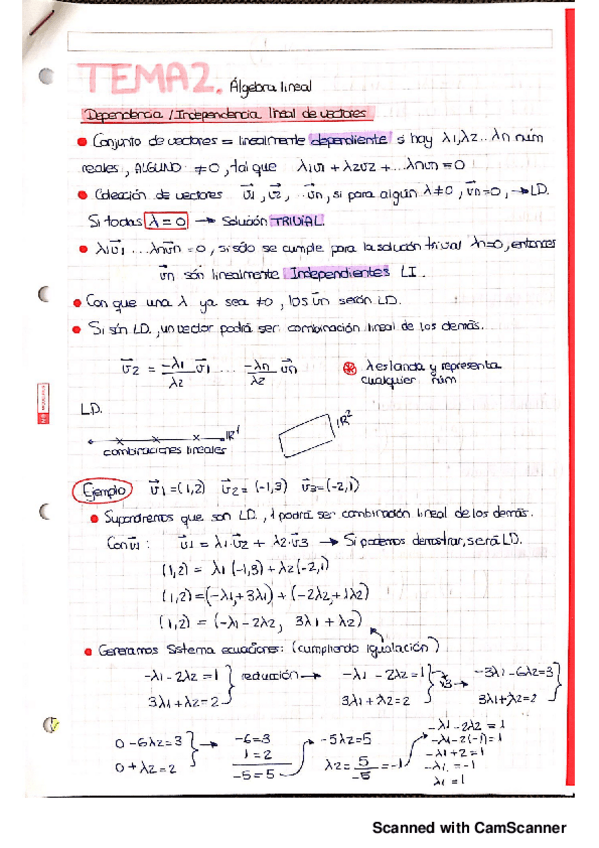 TEMA 2. Álgebra lineal
Dependencia / Independencia lineal de vectores
• Conjunto de vectores = linealmente dependiente si hay λ1, λ2... λn núm
reales, ALGUNO ≠0, tal que λ1v1 + λ2v2 + ...λnvn = 0
• Colección de vectores v⃗1, v⃗2, ... v⃗n, si para algún λ≠0, v⃗n=0, → LD.
Si todas λ = 0 → Solución TRIVIAL.
• λ1v⃗1 ... λnv⃗n = 0, si sólo se cumple para la solución trivial λn=0, entonces
v⃗n són linealmente Independientes LI.
• Con que una λ ya sea ≠0, los v⃗n serán LD.
• Si són LD., un vector podrá ser combinación lineal de los demás.
v⃗2 = -λ1/λ2 v⃗1 ... -λn/λ2 v⃗n
⊛ λ es landa y representa
cualquier núm
LD.
ℝ1
combinaciones lineales
ℝ2
Ejemplo v⃗1=(1,2) v⃗2=(-1,3) v⃗3=(-2,1)
• Supondremos que son LD., 1 podrá ser combinación lineal de los demás.
Con v⃗1: v⃗1 = λ1·v⃗2 + λ2·v⃗3 → Si podemos demostrar, será LD.
(1,2) = λ1(-1,3) + λ2(-2,1)
(1,2)=(-λ1+3λ1) + (-2λ2+1λ2)
(1,2) = (-λ1-2λ2, 3λ1+λ2)
• Generamos Sistema ecuaciones: (cumpliendo igualación)
-λ1-2λ2=1 } reducción → -λ1-2λ2=1 } ·3 → -3λ1-6λ2=3 }
3λ1+λ2=2 3λ1+λ2=2 3λ1+λ2=2
0-6λ2=3 } → -6=3 → -5λ2=5 → -λ1-2λ2=1
0+λ2=2 1=2 λ2=5/-5=-1 -λ1-2(-1)=1
-5=5 -λ1+2=1
-λ1=-1
λ1=1
Scanned with CamScanner